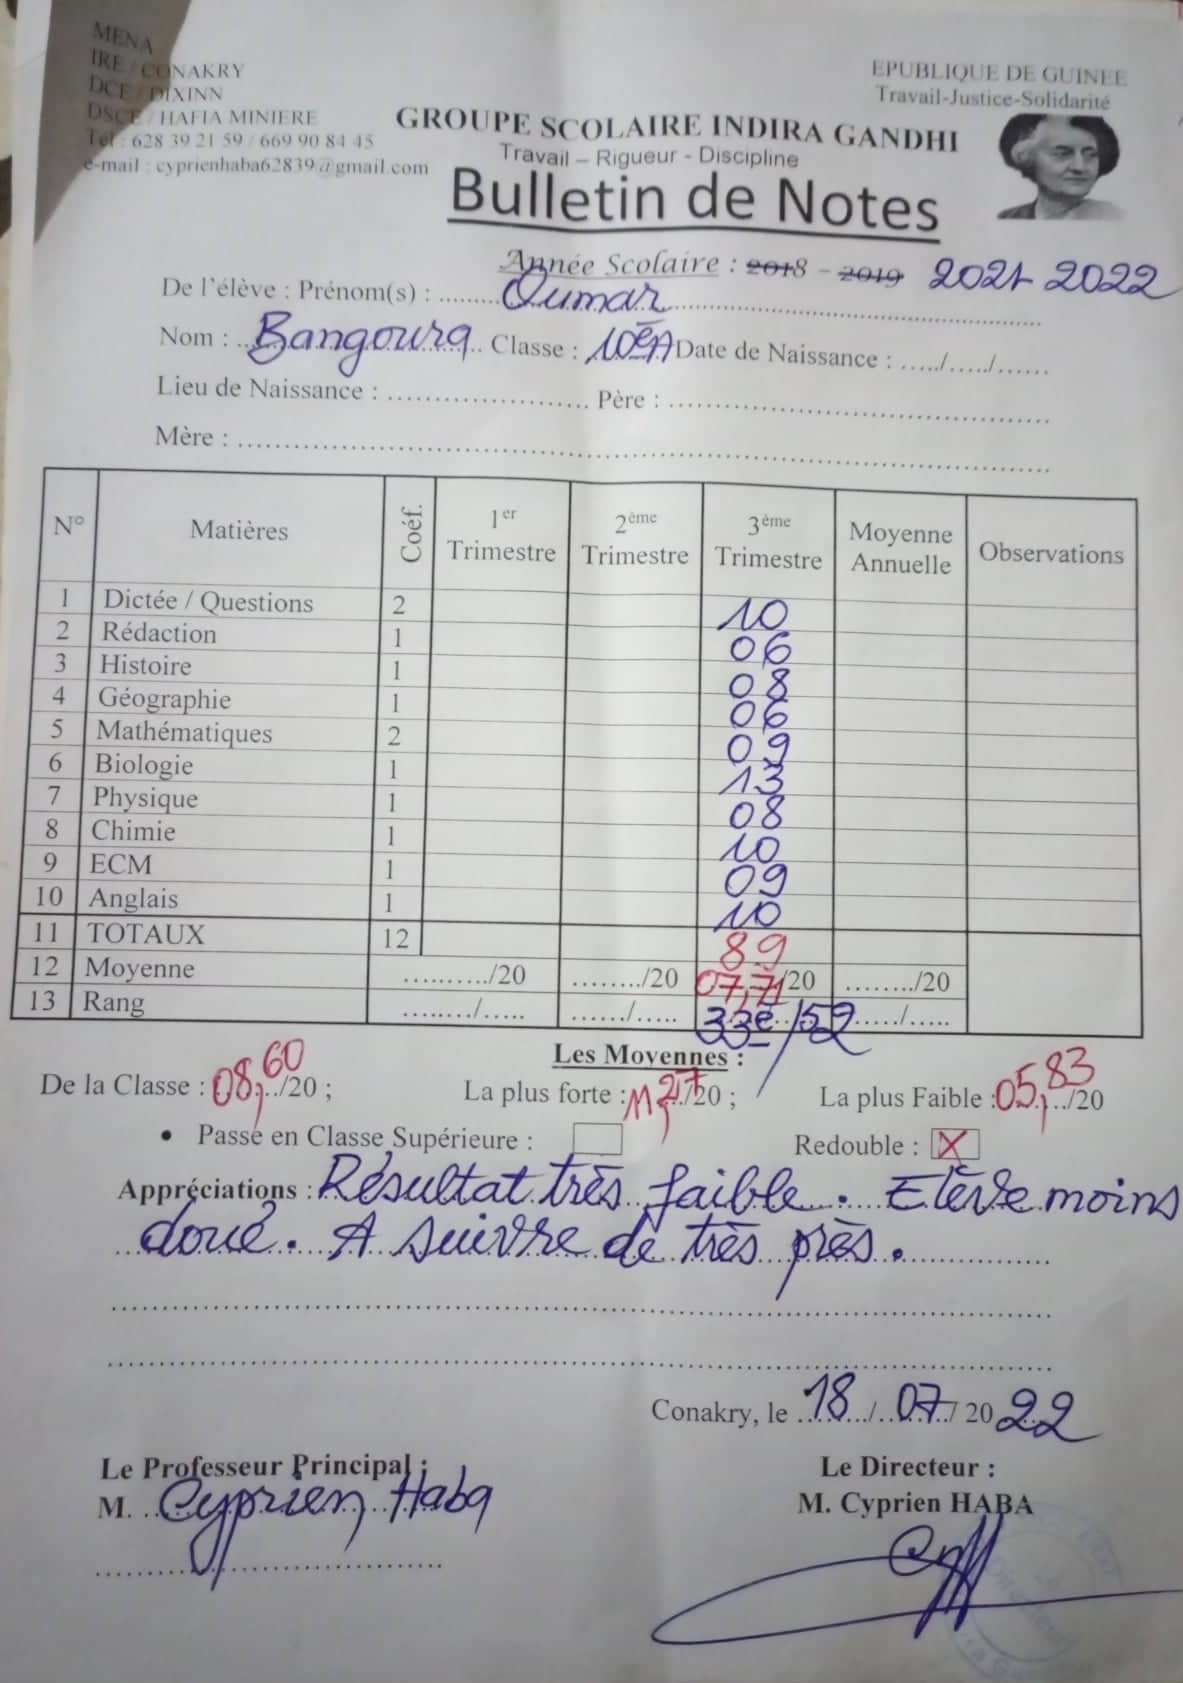 MENA
IRE / CONAKRY
DCE / DIXINN
DSCE / HAFIA MINIERE
Tél : 628 39 21 59 / 669 90 84 45
e-mail : cyprienhaba62839@gmail.com
EPUBLIQUE DE GUINEE
Travail-Justice-Solidarité
GROUPE SCOLAIRE INDIRA GANDHI
Travail – Rigueur - Discipline
Bulletin de Notes
Année Scolaire : 2018 - 2019 2021 2022
De l'élève : Prénom(s) : Oumar
Nom : Bangoura Classe : 10èA Date de Naissance : ...../...../......
Lieu de Naissance : ...................... Père : ........................................
Mère : ........................................
N° Matières Coéf. 1er Trimestre 2ème Trimestre 3ème Trimestre Moyenne Annuelle Observations
1 Dictée / Questions 2 10
2 Rédaction 1 06
3 Histoire 1 08
4 Géographie 1 06
5 Mathématiques 2 09
6 Biologie 1 13
7 Physique 1 08
8 Chimie 1 10
9 ECM 1 09
10 Anglais 1 10
11 TOTAUX 12 89
12 Moyenne ........../20 ......../20 07,71/20 ......../20
13 Rang ......../..... ....../..... 33è/52 ...../.....
Les Moyennes :
De la Classe : 08,60/20 ; La plus forte : 11,27/20 ; La plus Faible : 05,83/20
• Passe en Classe Supérieure : Redouble : X
Appréciations : Résultat très faible. Elève moins
doué. A suivre de très près.
Conakry, le 18/07/2022
Le Professeur Principal : Le Directeur :
M. Cyprien Haba M. Cyprien HABA